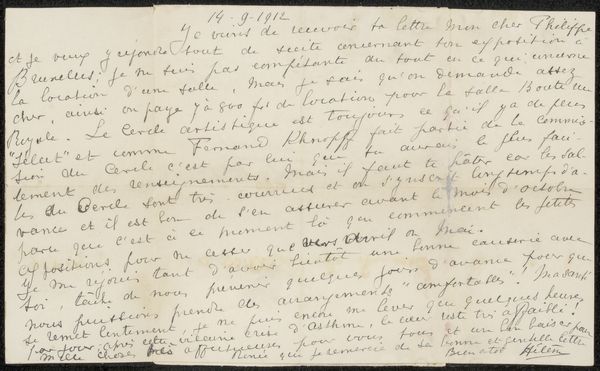 14-9-1912
Je viens de recevoir ta lettre mon cher Philippe
et je veux y répondre tout de suite concernant ton exposition à
Bruxelles; je ne suis pas compétante du tout en ce qui concerne
la location d'une salle, mais je sais qu'on demande assez
cher, ainsi on paye 7 à 800 frs de location, pour la salle Boute rue
Royale. Le Cercle artistique est toujours ce qu'il y a de plus
"select" et comme Fernand Khnopff fait partie de la commis-
sion du Cercle c'est par lui que tu aurais le plus faci-
lement des renseignements. Mais il faut te hâter car les sal-
les du Cercle sont très courrues et on s'y inscrit longtemps d'a-
vance et il est bon de s'en assurer avant le mois d'octobre
parce que c'est à ce moment là que commencent les petits
expositions pour ne cesser que vers Avril ou Mai.
Je me rejouis tant d'avoir bientôt une bonne causerie avec
toi, tache de nous prevenir quelques jours d'avance pour que
nous puissions prendre des arrangements "comfortables"! Ma santé
se remet lentement, je ne puis encore me lever que quelques heures
par jour, après cette vilaine crise d'Asthme, le cœur reste très affaibli!
Mille choses très affectueuses pour vous tous et un bon baiser pour
Renée que je remercie de sa bonne et gentille lettre
Bien à toi Hélène